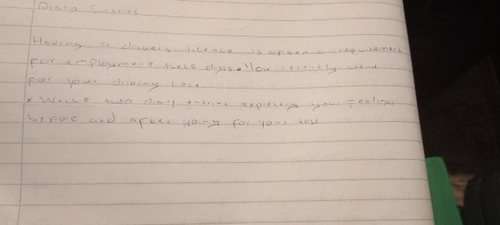 Diary Entries
Having a drivers licence is often a requirement
for employment these days. You recently went
for your driving test.
* Write two diary entries expressing your feelings
before and after going for your test